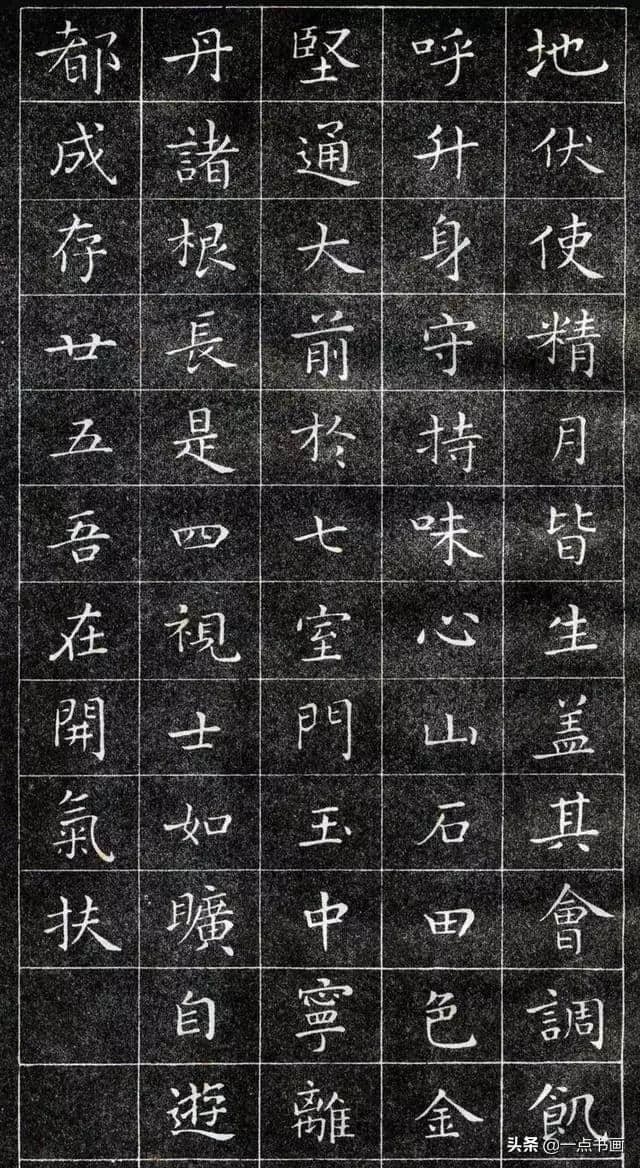 地伏使精月皆生盖其會調飢
呼升身守持味心山石田色金
堅通大前於七室門玉中寧離
丹諸根長是四視士如曠自遊
都成存廿五吾在開氣扶
头条 @一点书画